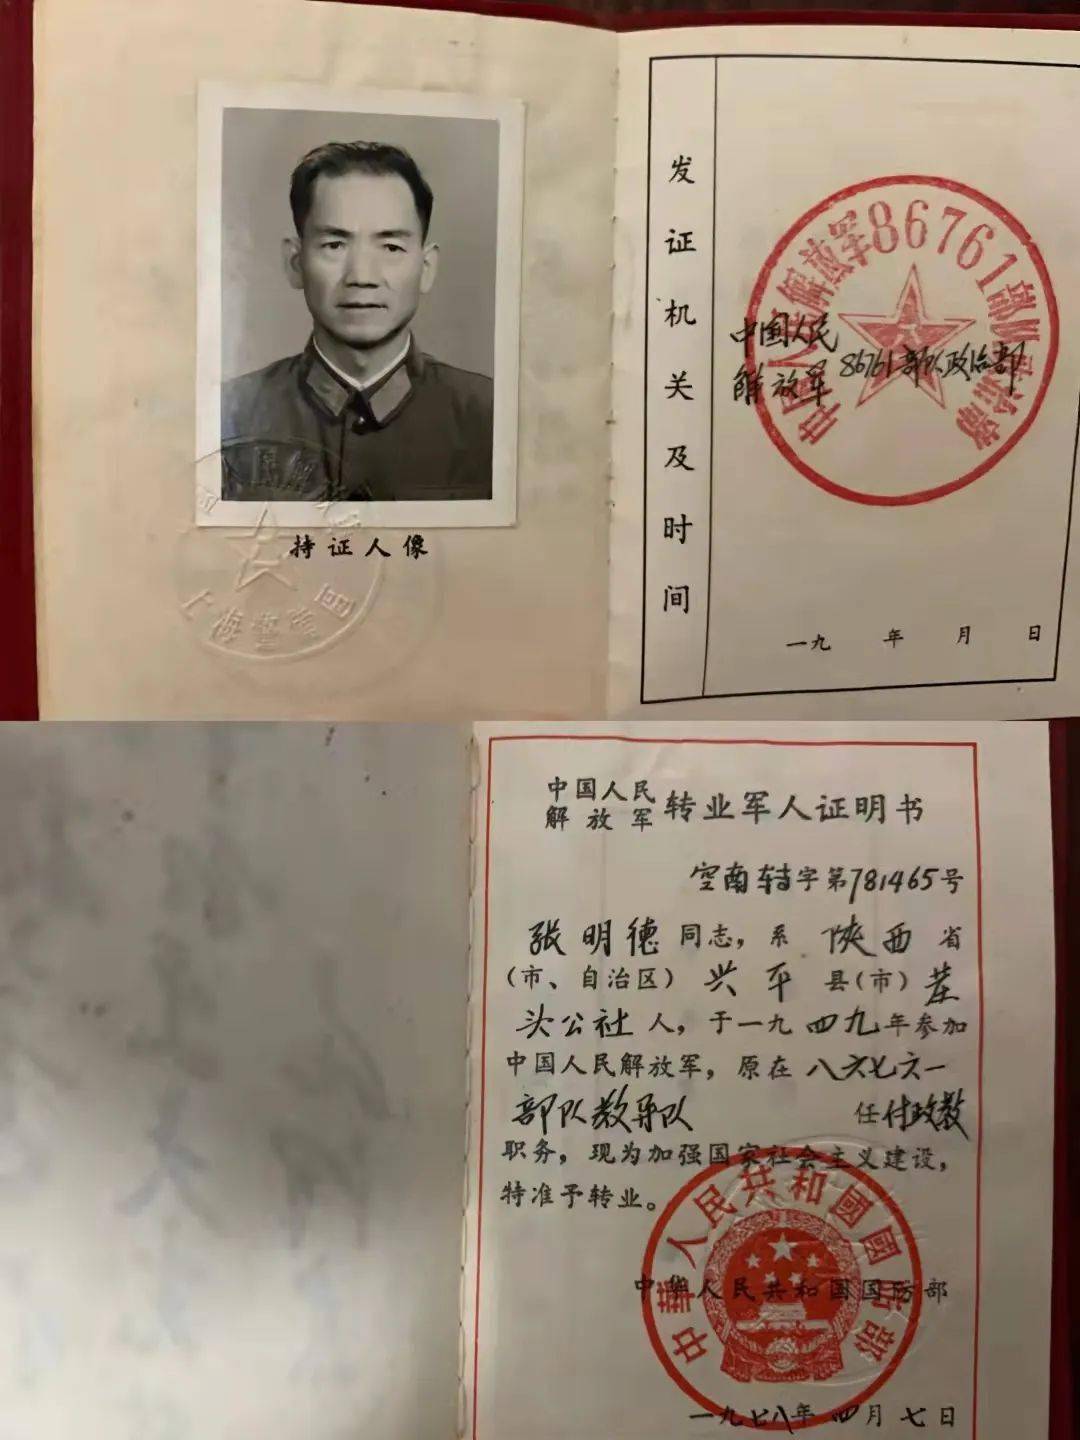 持证人像
上海警备区
发证机关及时间
中国人民解放军86761部队政治部
中国人民
解放军 86761部队政治部
一九 年 月 日
中国人民
解放军 转业军人证明书
空南转字第781465号
张明德 同志，系 陕西 省
（市、自治区） 兴平 县（市） 茬
头公社 人，于一九四九年参加
中国人民解放军，原在八六七六一
部队教导队 任付政教
职务，现为加强国家社会主义建设，
特准予转业。
中華人民共和國國防部
中华人民共和国国防部
一九七八年四月七日